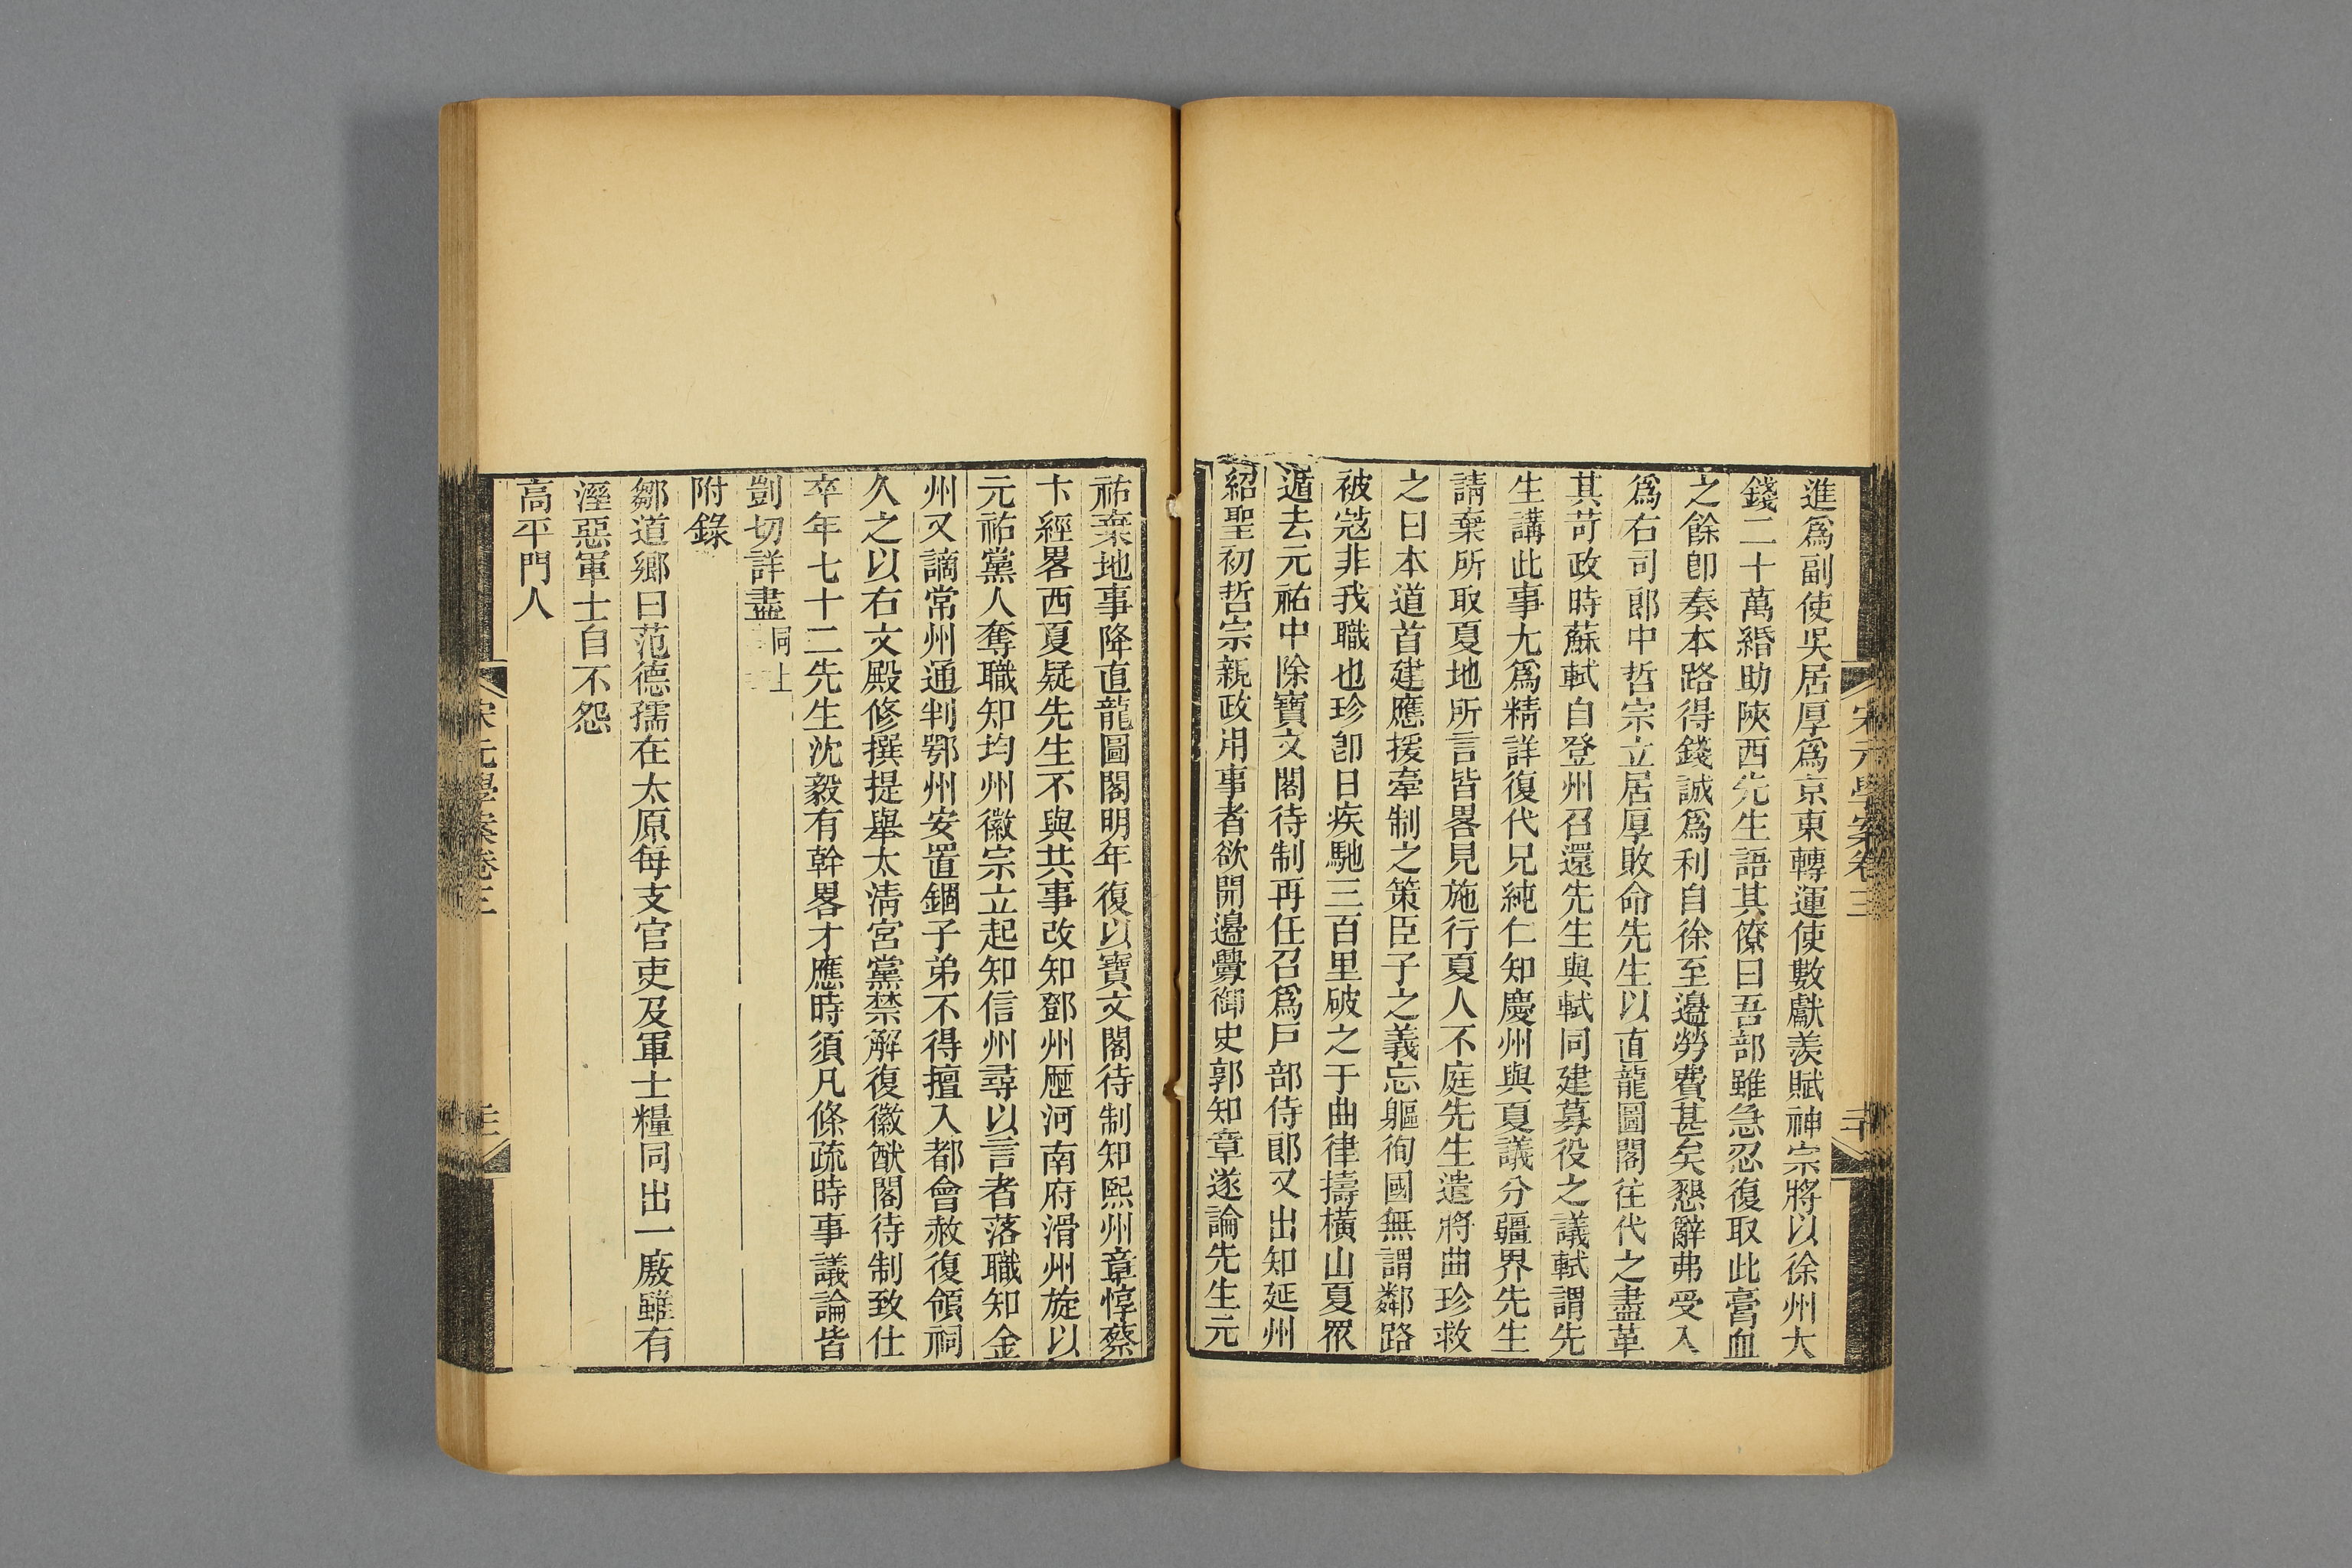 宋元學案卷三
進爲副使吳居厚爲京東轉運使數獻羨賦神宗將以徐州大
錢二十萬緡助陝西先生語其僚曰吾部雖急忍復取此膏血
之餘卽奏本路得錢誠爲利自徐至邊勞費甚矣懇辭弗受入
爲右司郎中哲宗立居厚敗命先生以直龍圖閣往代之盡革
其苛政時蘇軾自登州召還先生與軾同建募役之議軾謂先
生講此事尤爲精詳復代兄純仁知慶州與夏議分疆界先生
請棄所取夏地所言皆畧見施行夏人不庭先生遣將曲珍救
之曰本道首建應援牽制之策臣子之義忘軀徇國無謂鄰路
被寇非我職也珍卽日疾馳三百里破之于曲律擣橫山夏眾
遁去元祐中除寶文閣待制再任召爲戶部侍郞又出知延州
紹聖初哲宗親政用事者欲開邊釁御史郭知章遂論先生元
祐棄地事降直龍圖閣明年復以寶文閣待制知熙州章惇蔡
卞經畧西夏疑先生不與共事改知鄧州歷河南府滑州旋以
元祐黨人奪職知均州徽宗立起知信州尋以言者落職知金
州又謫常州通判鄂州安置錮子弟不得擅入都會赦復領祠
久之以右文殿修撰提舉太淸宮黨禁解復徽猷閣待制致仕
卒年七十二先生沈毅有幹畧才應時須凡條疏時事議論皆
剴切詳盡同上
附錄
鄒道鄉曰范德孺在太原每支官吏及軍士糧同出一廒雖有
溼惡軍士自不怨
高平門人
宋元學案卷三